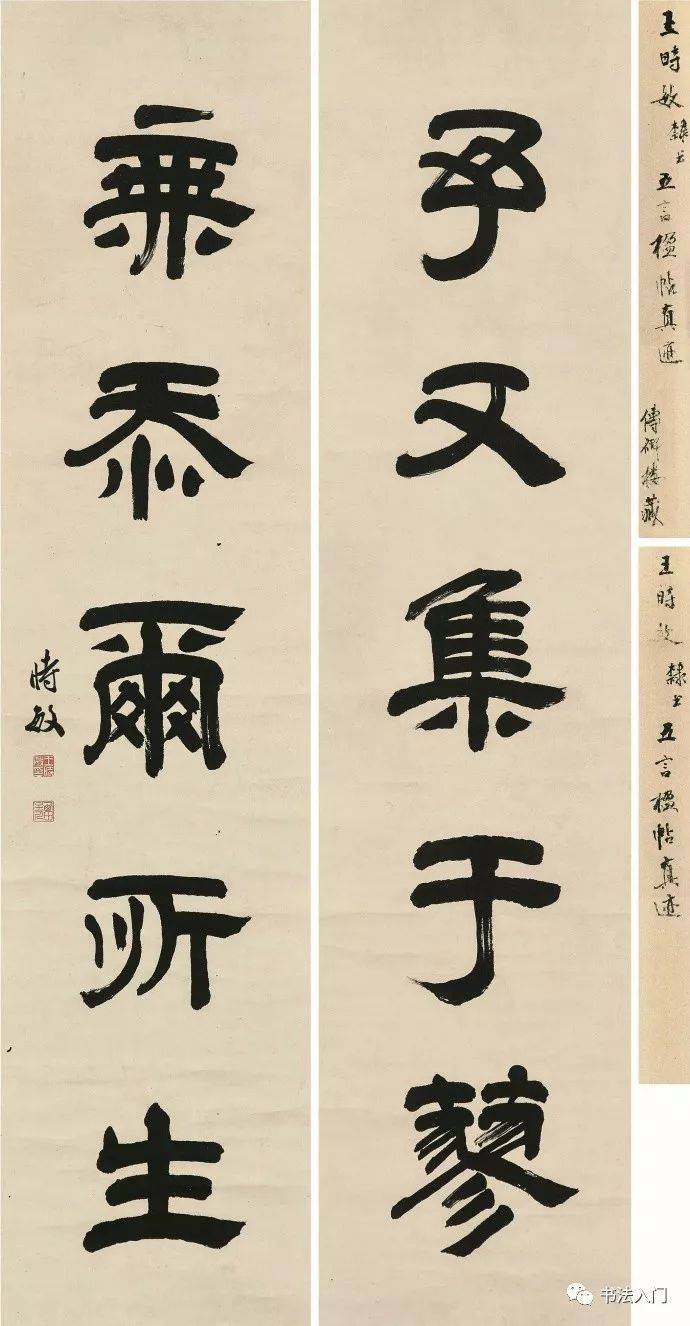 王時敏隸书五言楹帖真迹
傳研楼藏
王時敏隸书五言楹帖真迹
予又集于蓼
無忝爾所生
時敏
书法入门